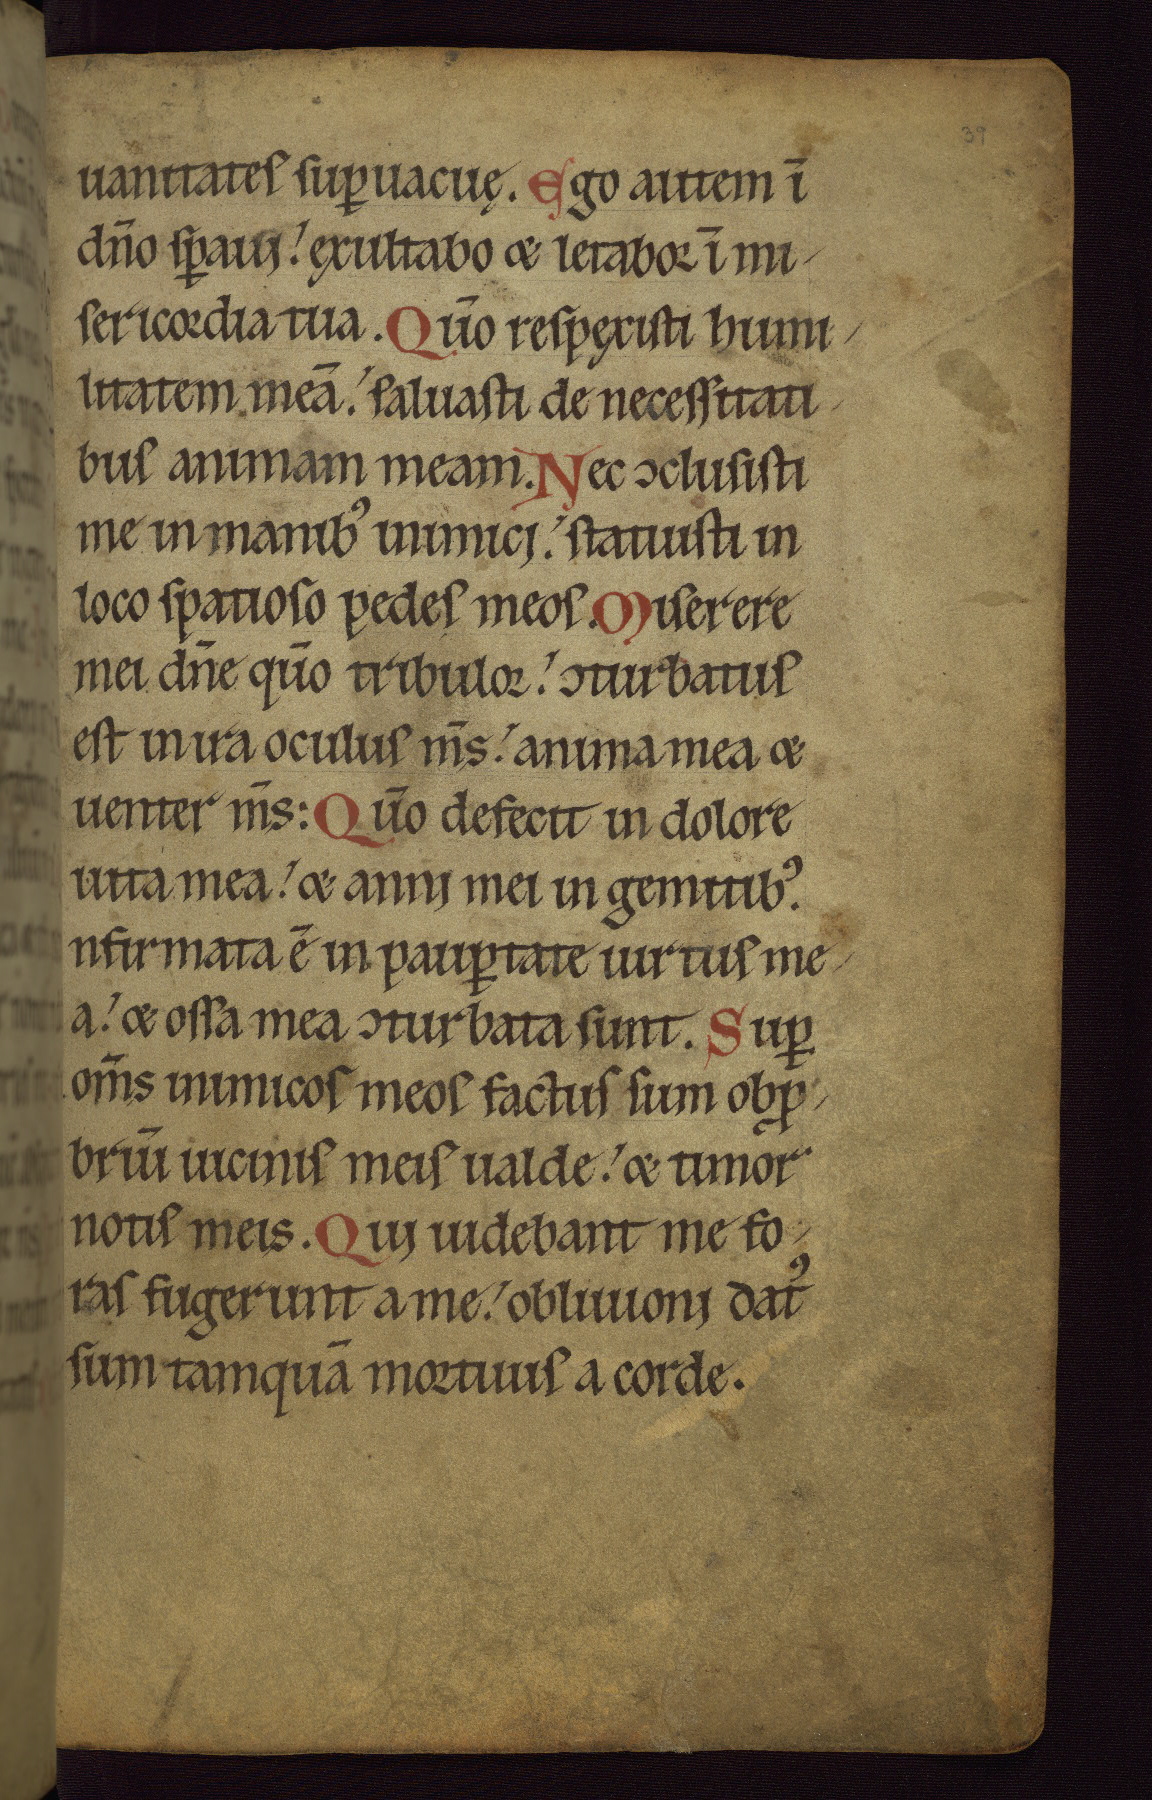 39
uanitates suꝑuacuę. Ego autem ī
dn̄o sꝑauı; exultabo & letabor ī mi-
sericordia tua. Qūo respęxisti humi-
litatem meā; saluasti de necessitati-
bus animam meam. Nec ↄclusisti
me in manib᾽ inimici; statuisti in
loco spatioso pedes meos. Miserere
mei dn̄e qūo tribulor; ↄturbatus
est in ira oculus m̄s; anima mea &
uenter m̄s: Qūo defecit in dolore
uita mea; & anni mei in gemitib᾽.
nfirmata ē in pauꝑtate uirtus me-
a; & ossa mea ↄturbata sunt. Suꝑ
om̄s inimicos meos factus sum obꝓ-
briū uicinis meis ualde; & timor
notis meis. Qui uidebant me fo-
ras fugerunt a me; obliuioni dat᾽
sum tamquā mortuus a corde.